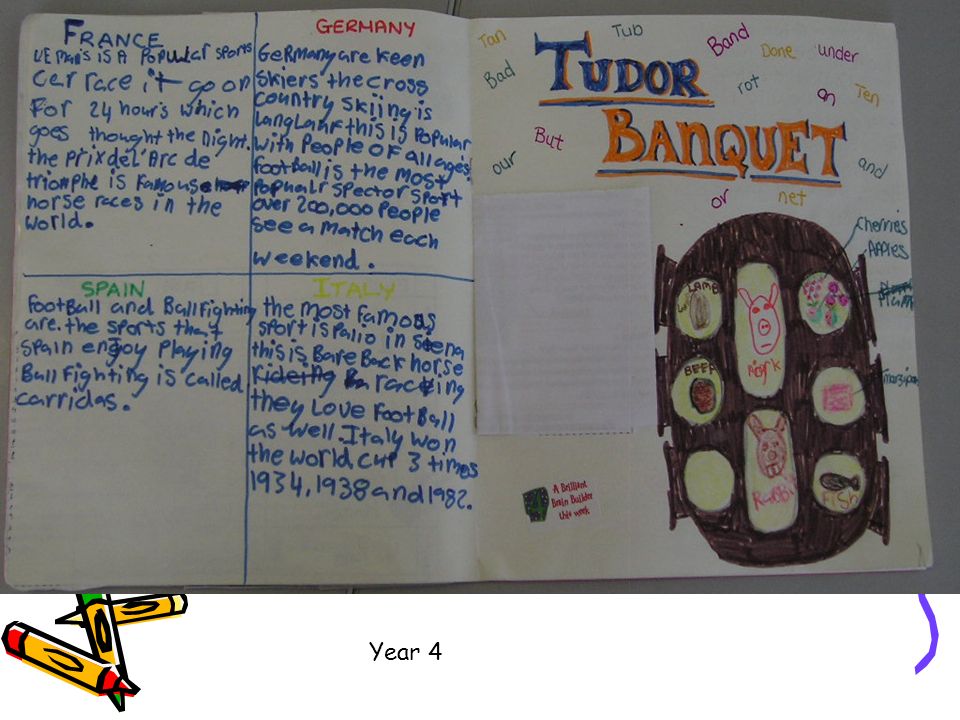 FRANCE
LE Mans is A Popular sports
car race it go on
For 24 hours which
goes thought the Night.
the Prix del'Arc de
triomphe is Famous
horse races in the
world.
GERMANY
Germany are keen
skiers the cross
country skiing is
langlank this is Popular
with People OF all ages.
football is the most
Popualr spector sport
over 200,000 People
see a match each
weekend.
SPAIN
Football and Ballfighting
are the sports that
spain enjoy Playing
Ball Fighting is called
carridas.
ITALY
the most famous
sport is Palio in siena
this is Bare Back horse
riding racing
they Love Football
as well. Italy won
the world cup 3 times
1934, 1938 and 1982.
Tan
Tub
Band
Done
under
Bad
rot
on
Ten
TUDOR
BANQUET
But
our
and
or
net
Cherries
APPles
Plum
LAMB
Pork
BEEF
marzipan
Rabbit
FISh
A Brilliant
Brain Builder
this week
Year 4